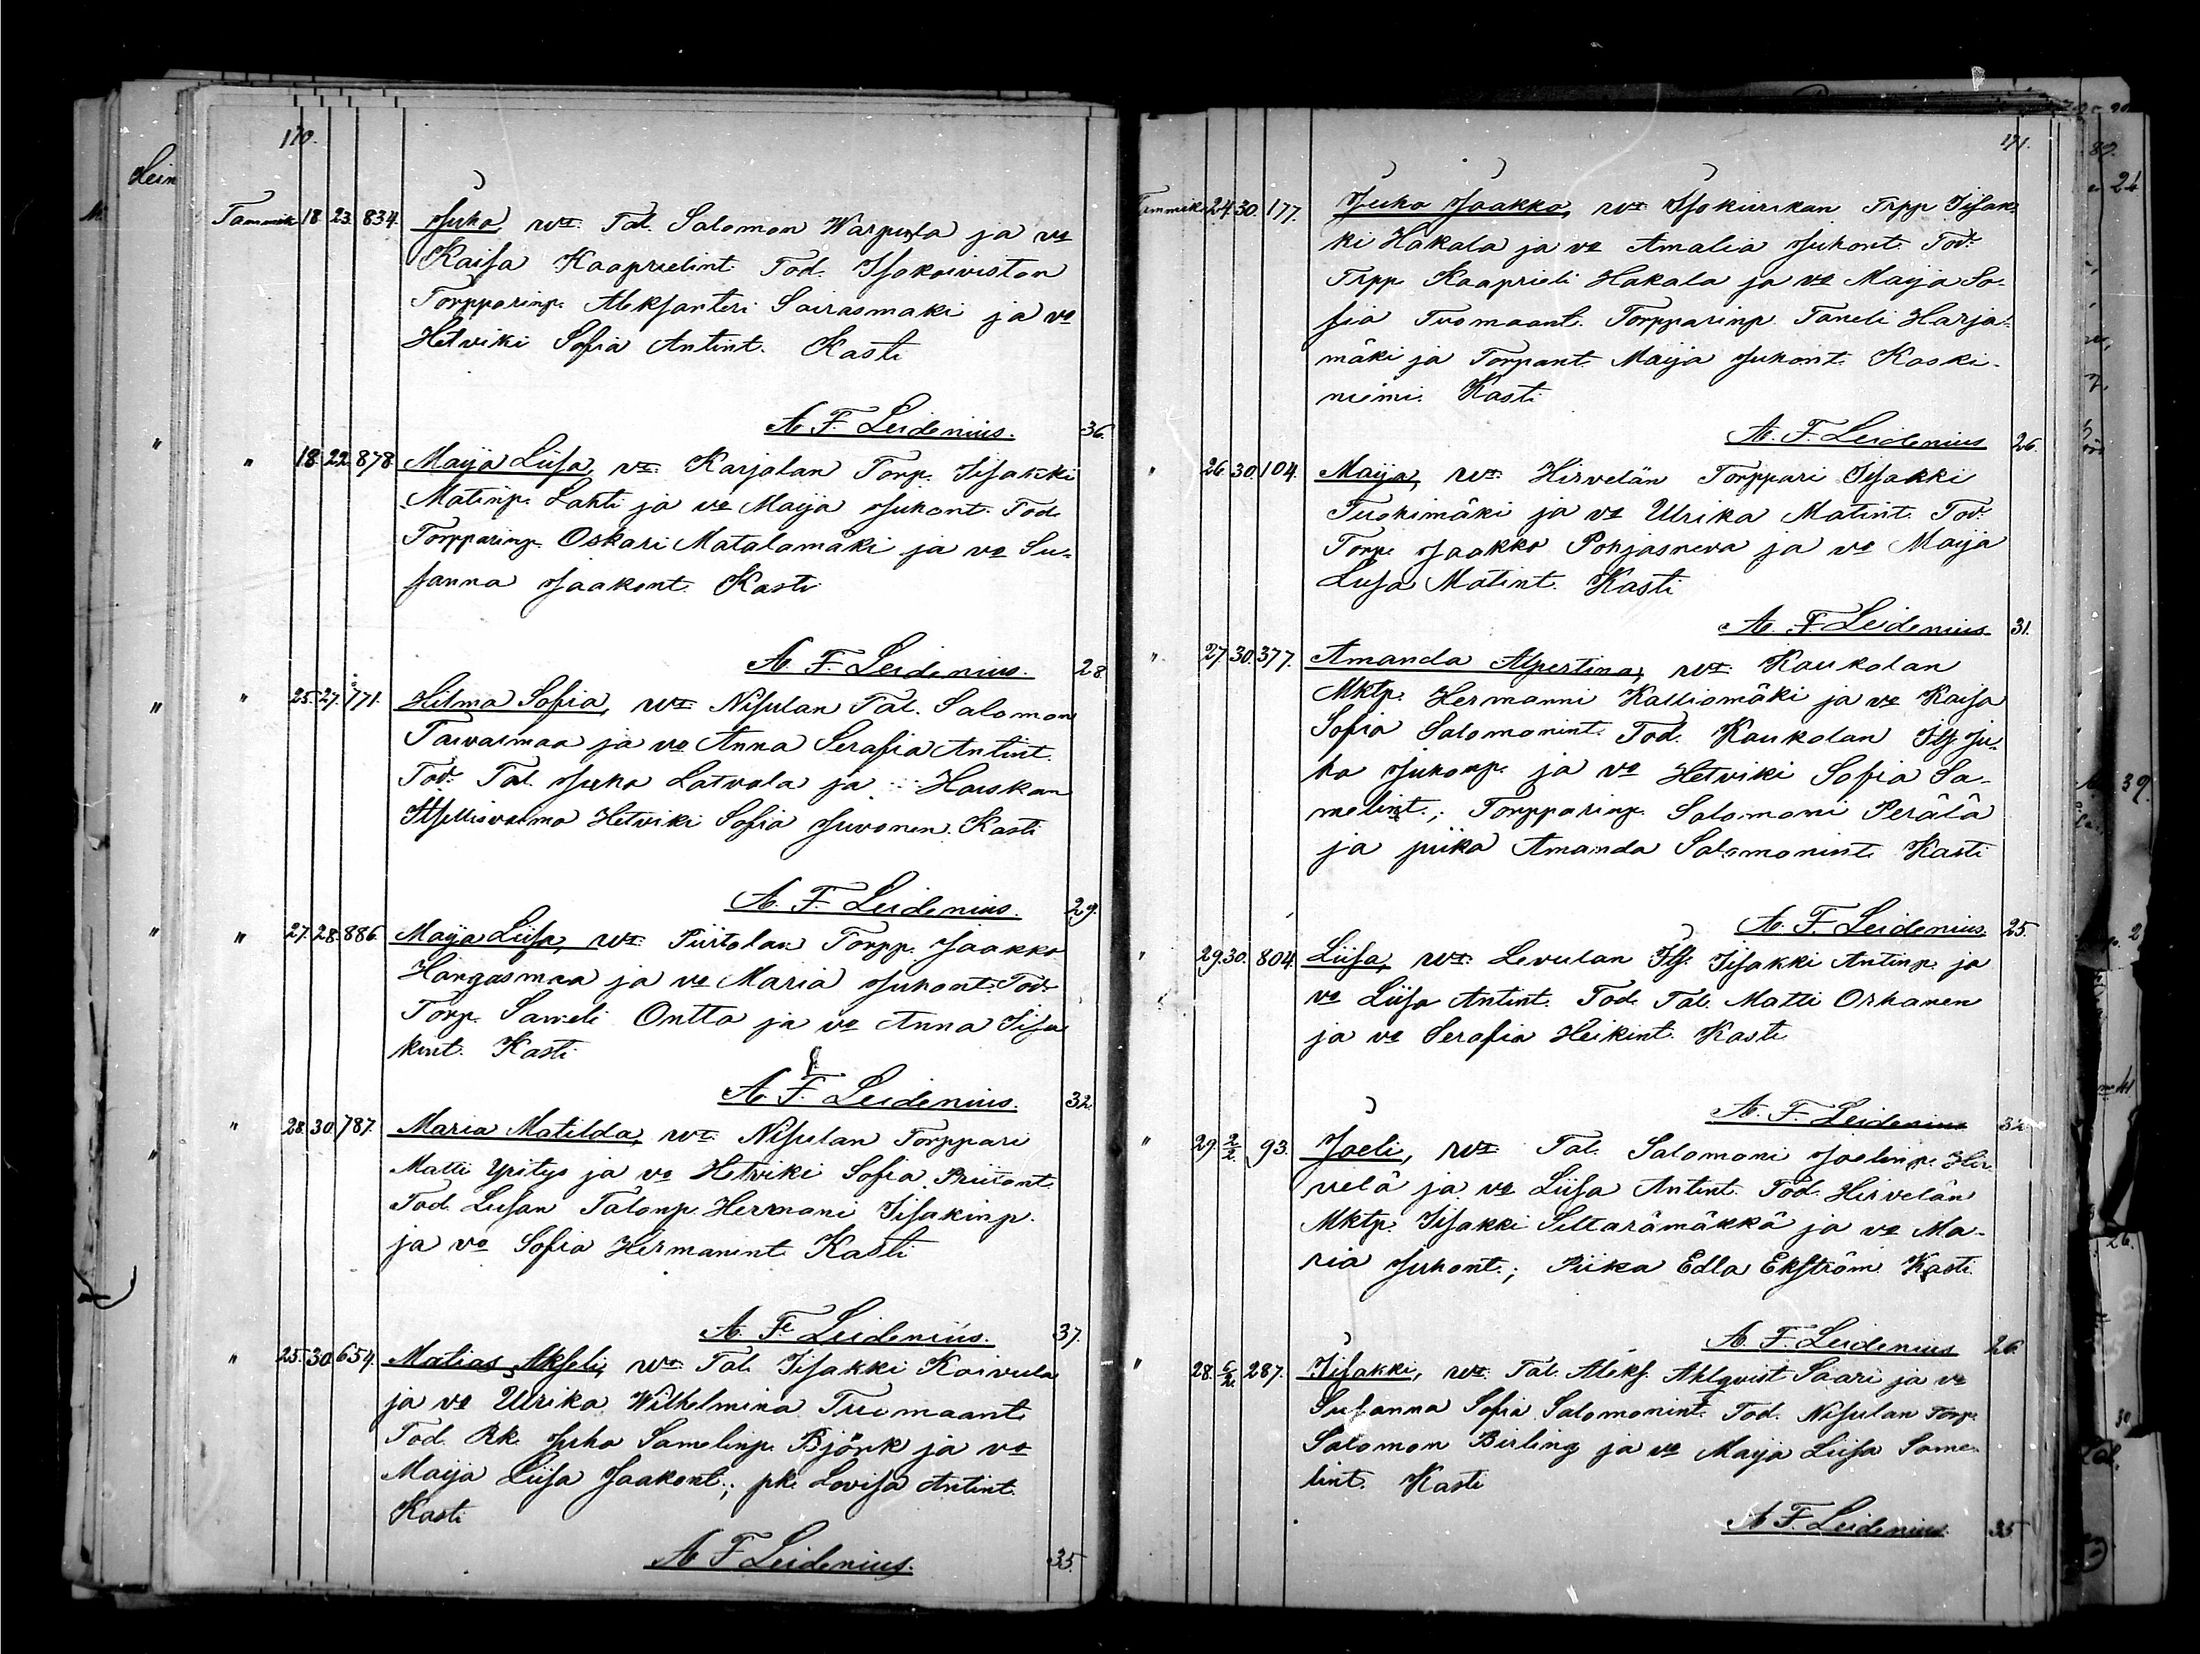 170.
Tammik. 18. 23. 834. Juho, vt. Tal. Salomon Warpula ja vo
Kaisa Kaaprielint. Tod. Isokoiviston
Torpparinp. Aleksanteri Sairasmäki ja vo
Hetviki Sofia Antint. Kasti
A. F. Leidenius. 36.
" 18. 22. 878. Maija Liisa, vt. Karjalan Torp. Iisakki
Matinp. Lahti ja vo Maija Juhont. Tod.
Torpparinp. Oskari Matalamäki ja vo Su-
sanna Jaakont. Kasti
A. F. Leidenius. 28.
" 25. 27. 771. Hilma Sofia, vt. Nisulan Tal. Salomon
Taivasmaa ja vo Anna Serafia Antint.
Tod. Tal. Juho Latvala ja Hauskan
Itsellisvaimo Hetviki Sofia Juvonen. Kasti
A. F. Leidenius. 29.
" 27. 28. 886. Maija Liisa, vt. Piirtolan Torpp. Jaakko
Hangasmaa ja vo Maria Juhont. Tod.
Torp. Sameli Ontto ja vo Anna Iisa
kint. Kasti
A. F. Leidenius. 32.
" 28. 30. 787. Maria Matilda, vt. Nisulan Torppari
Matti Yritys ja vo Hetviki Sofia
Tod. Luson Talonp. Hermani Iisakinp.
ja vo Sofia Hermanint. Kasti
A. F. Leidenius. 37.
" 25. 30. 654. Matias Akseli, vt. Tal. Iisakki Koivula
ja vo Ulrika Wilhelmina Tuomaant.
Tod. Rk. Juho Samelinp. Björk ja vo
Maija Liisa Jaakont.; pk. Lovisa Antint.
Kasti
A F Leidenius. 35.
171.
Tammik. 24. 30. 177. Juho Jaakko, vt. Isokurikan Trpp Iisak-
ki Hakala ja vo Amalia Juhont. Tod.
Trpp. Kaaprieli Hakala ja vo Maija So-
fia Tuomaant. Torpparinp. Taneli Harja-
mäki ja Torpant. Maija Juhont. Koski-
niemi. Kasti
A. F. Leidenius 26.
" 26. 30. 104. Maija, vt. Hirvelän Torppari Iisakki
Tuohimäki ja vo Ulrika Matint. Tod.
Torp. Jaakko Pohjasneva ja vo Maija
Liisa Matint. Kasti
A. F. Leidenius 31.
" 27. 30. 377. Amanda Alpertina, vt. Kaukolan
Mktp. Hermanni Kalliomäki ja vo Kaisa
Sofia Salomonint. Tod. Kaukolan Its. Ju-
ho Juhonp. ja vo Hetviki Sofia Sa-
melint.; Torpparinp. Salomoni Perälä
ja piika Amanda Salomonint. Kasti
A. F. Leidenius. 25.
" 29. 30. 804. Liisa, vt. Levulan Its. Iisakki Antinp. ja
vo Liisa Antint. Tod. Tal. Matti Orhanen
ja vo Serafia Heikint. Kasti
A. F. Leidenius 32.
" 29. 2/2. 93. Joeli, vt. Tal. Salomoni Joelinp. Hir-
velä ja vo Liisa Antint. Tod. Hirvelän
Mktp. Iisakki Siltarämäkkä ja vo Ma-
ria Juhont.; Piika Edla Ekström. Kasti
A. F. Leidenius 26.
" 28. 287. Iisakki, vt. Tal. Aleks. Ahlqvist Saari ja vo
Susanna Sofia Salomonint. Tod. Nisulan Torp.
Salomon Birling ja vo Maija Liisa Same-
lint. Kasti
A F. Leidenius. 35